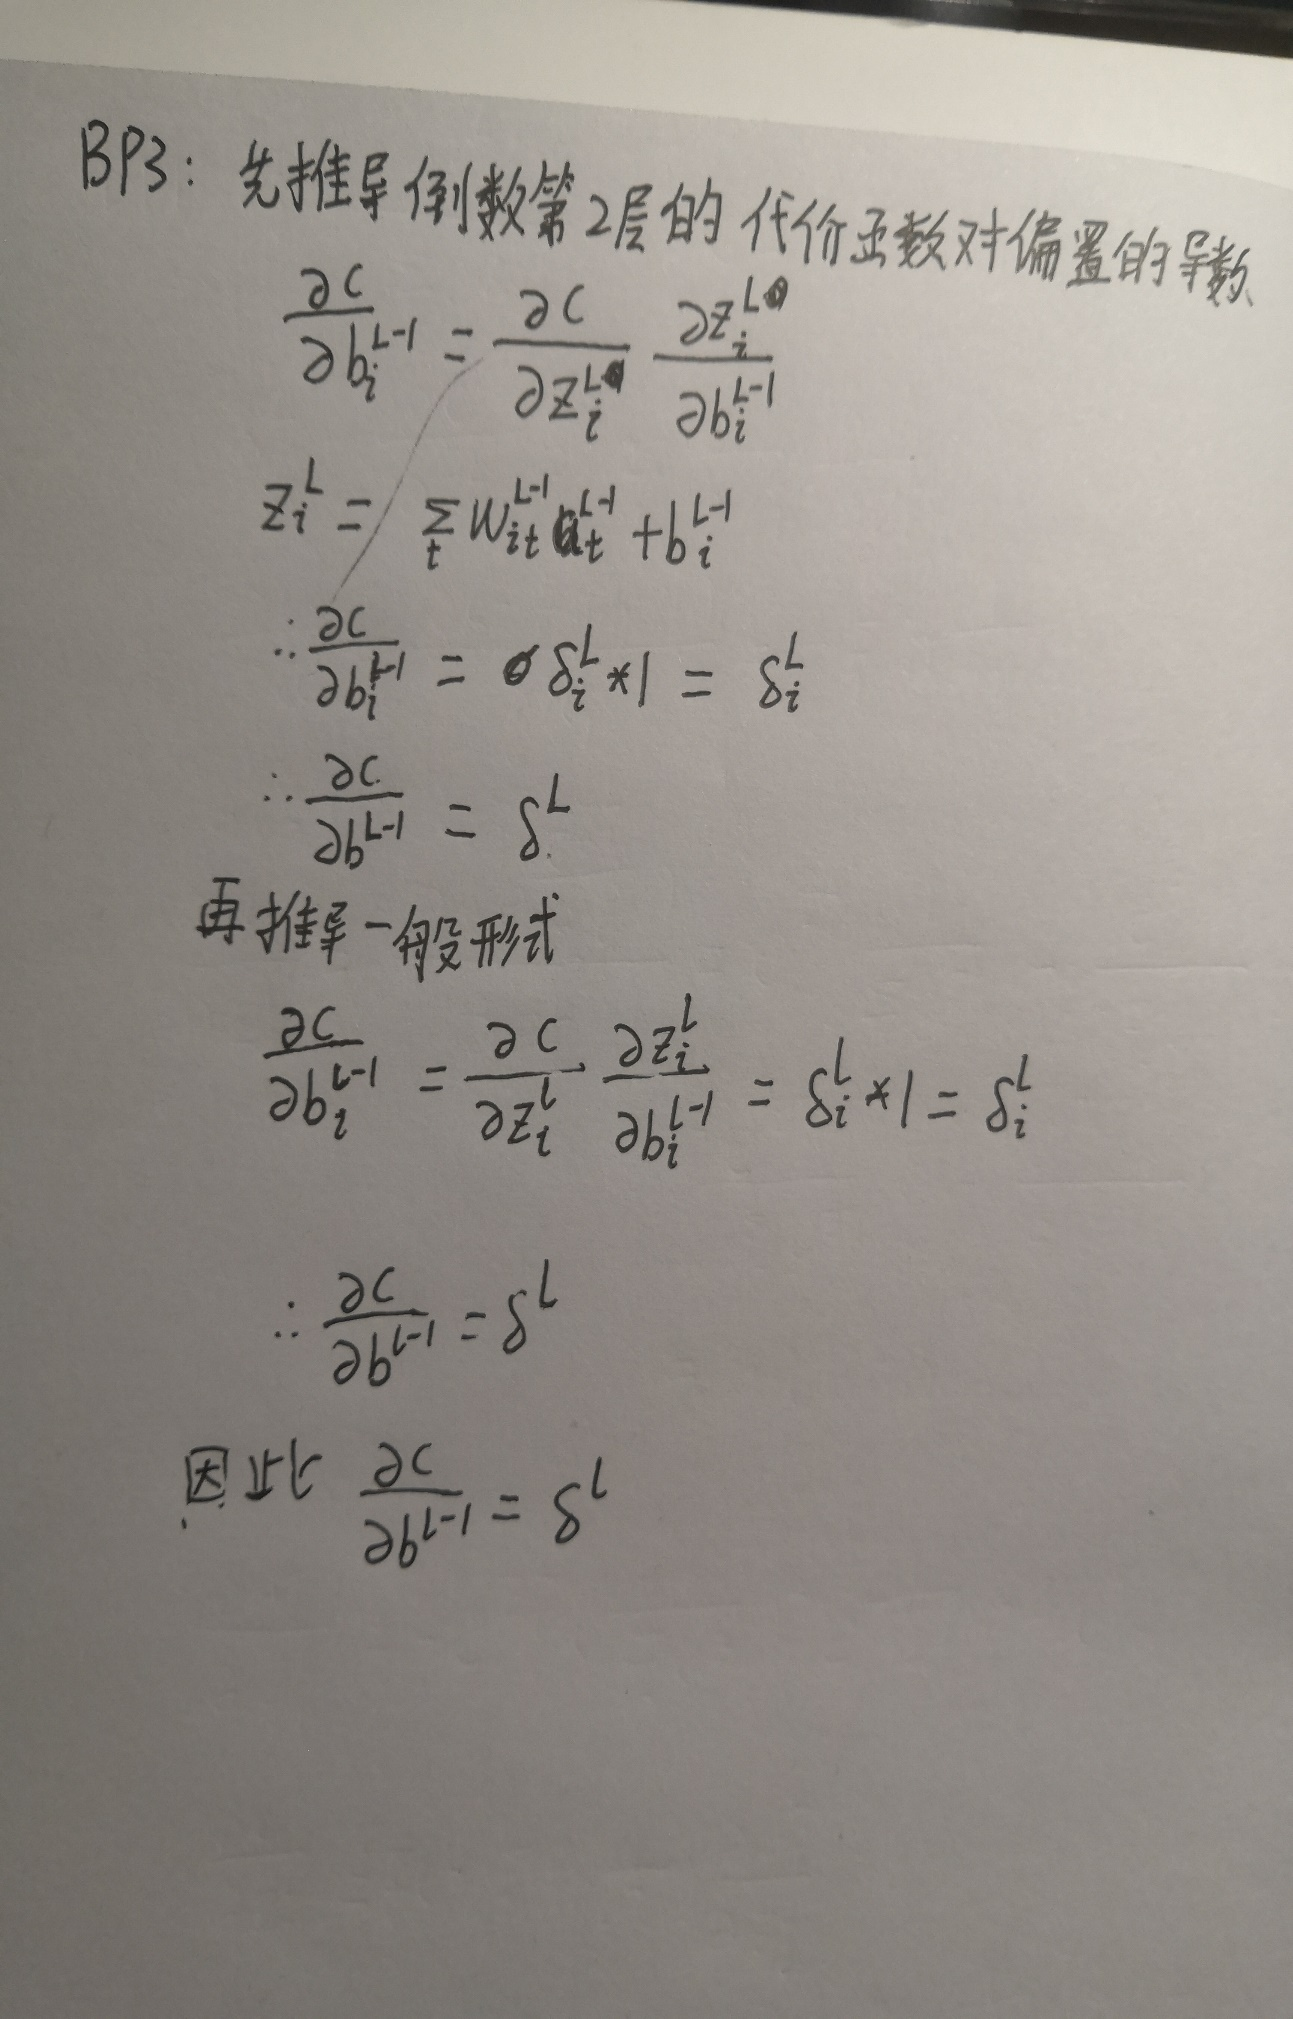 BP3: 先推导倒数第2层的代价函数对偏置的导数
∂C/∂b_i^{L-1} = ∂C/∂z_i^L ∂z_i^L/∂b_i^{L-1}
z_i^L = Σ_t W_{it}^{L-1} a_t^{L-1} + b_i^{L-1}
∴ ∂C/∂b_i^{L-1} = δ_i^L * 1 = δ_i^L
∴ ∂C/∂b^{L-1} = δ^L
再推导一般形式
∂C/∂b_i^{l-1} = ∂C/∂z_i^l ∂z_i^l/∂b_i^{l-1} = δ_i^l * 1 = δ_i^l
∴ ∂C/∂b^{l-1} = δ^l
因此 ∂C/∂b^{l-1} = δ^l